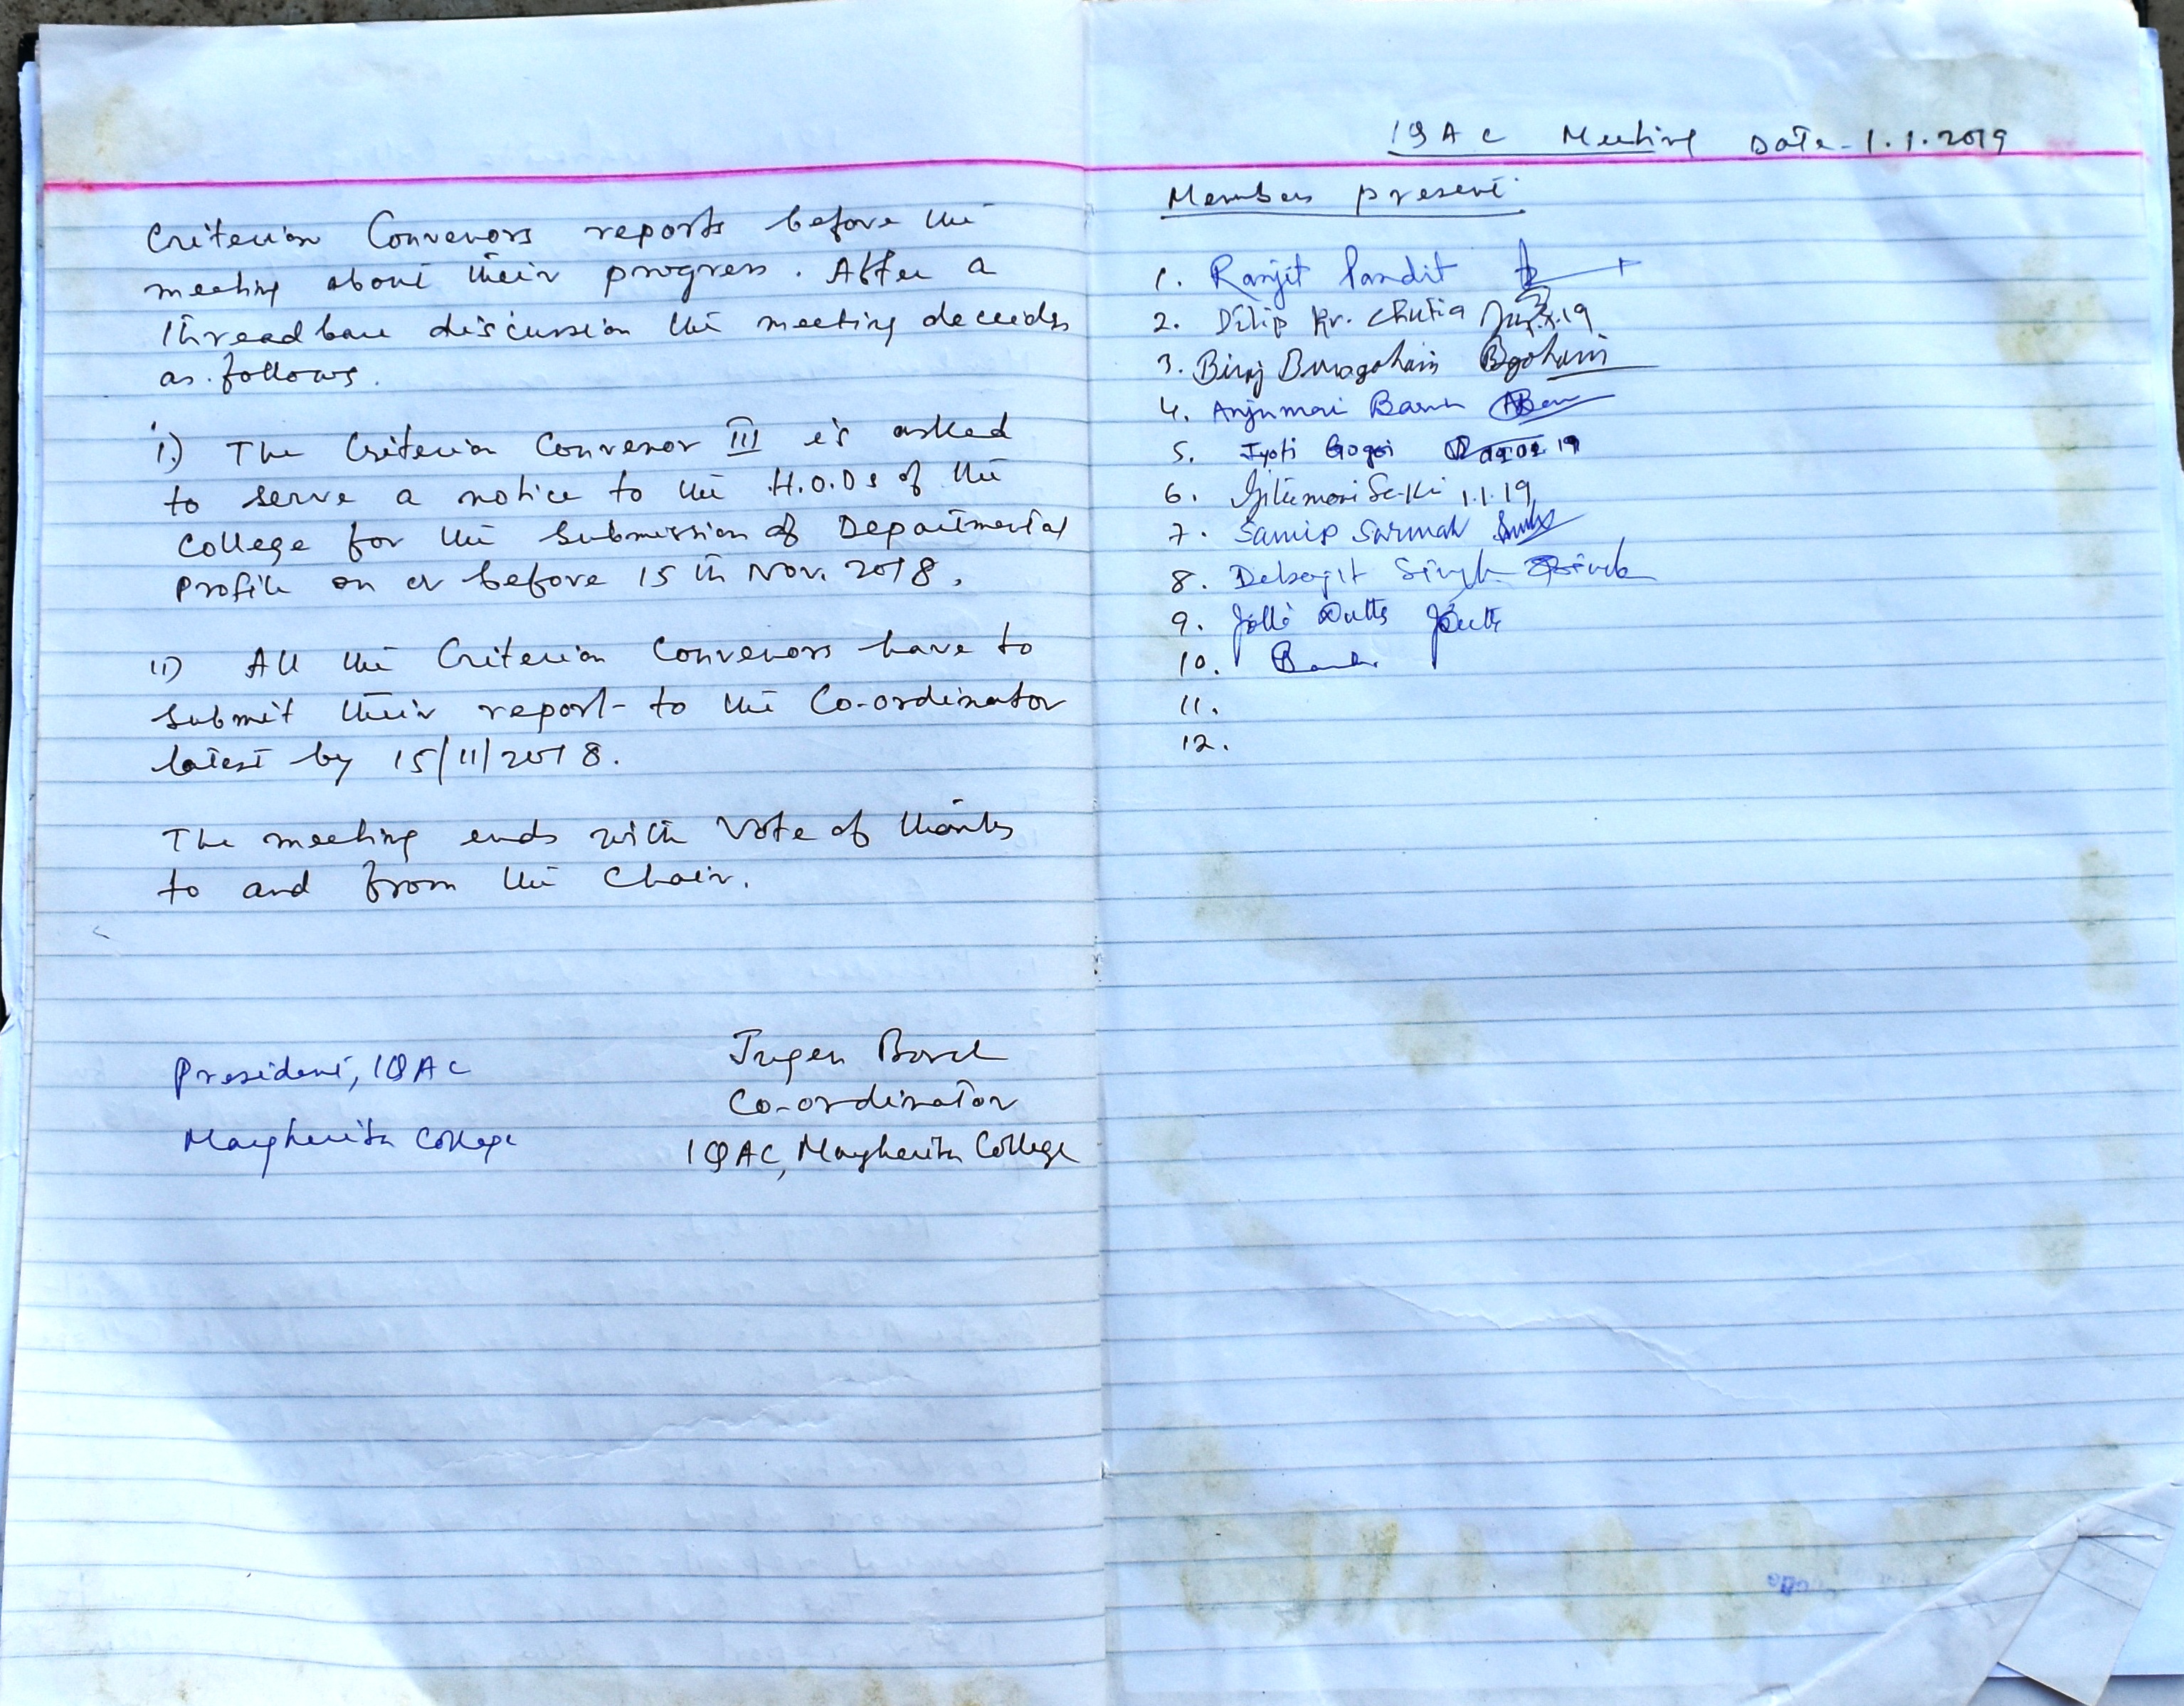 Criterion Convenors reports before the
meeting about their progress. After a
threadbare discussion the meeting decides
as follows.
i.) The Criterion Convenor III is asked
to serve a notice to the H.O.Ds of the
College for the Submission of Departmental
Profile on or before 15 th Nov. 2018.
ii) All the Criterion Convenors have to
submit their report to the Co-ordinator
latest by 15/11/2018.
The meeting ends with Vote of thanks
to and from the Chair.
President, IQAC
Margherita College
Jugen Borah
Co-ordinator
IQAC, Margherita College
IQAC Meeting Date - 1.1.2019
Members present:
1. Ranjit Pandit
2. Dilip Kr. Chutia
3. Biraj Buragohain Bgohain
4. Anjumoni Baruah
5. Jyoti Gogoi
6. 1.1.19
7. Samip Sarmah
8. Debojit Singh
9. Dutta JDutta
10.
11.
12.